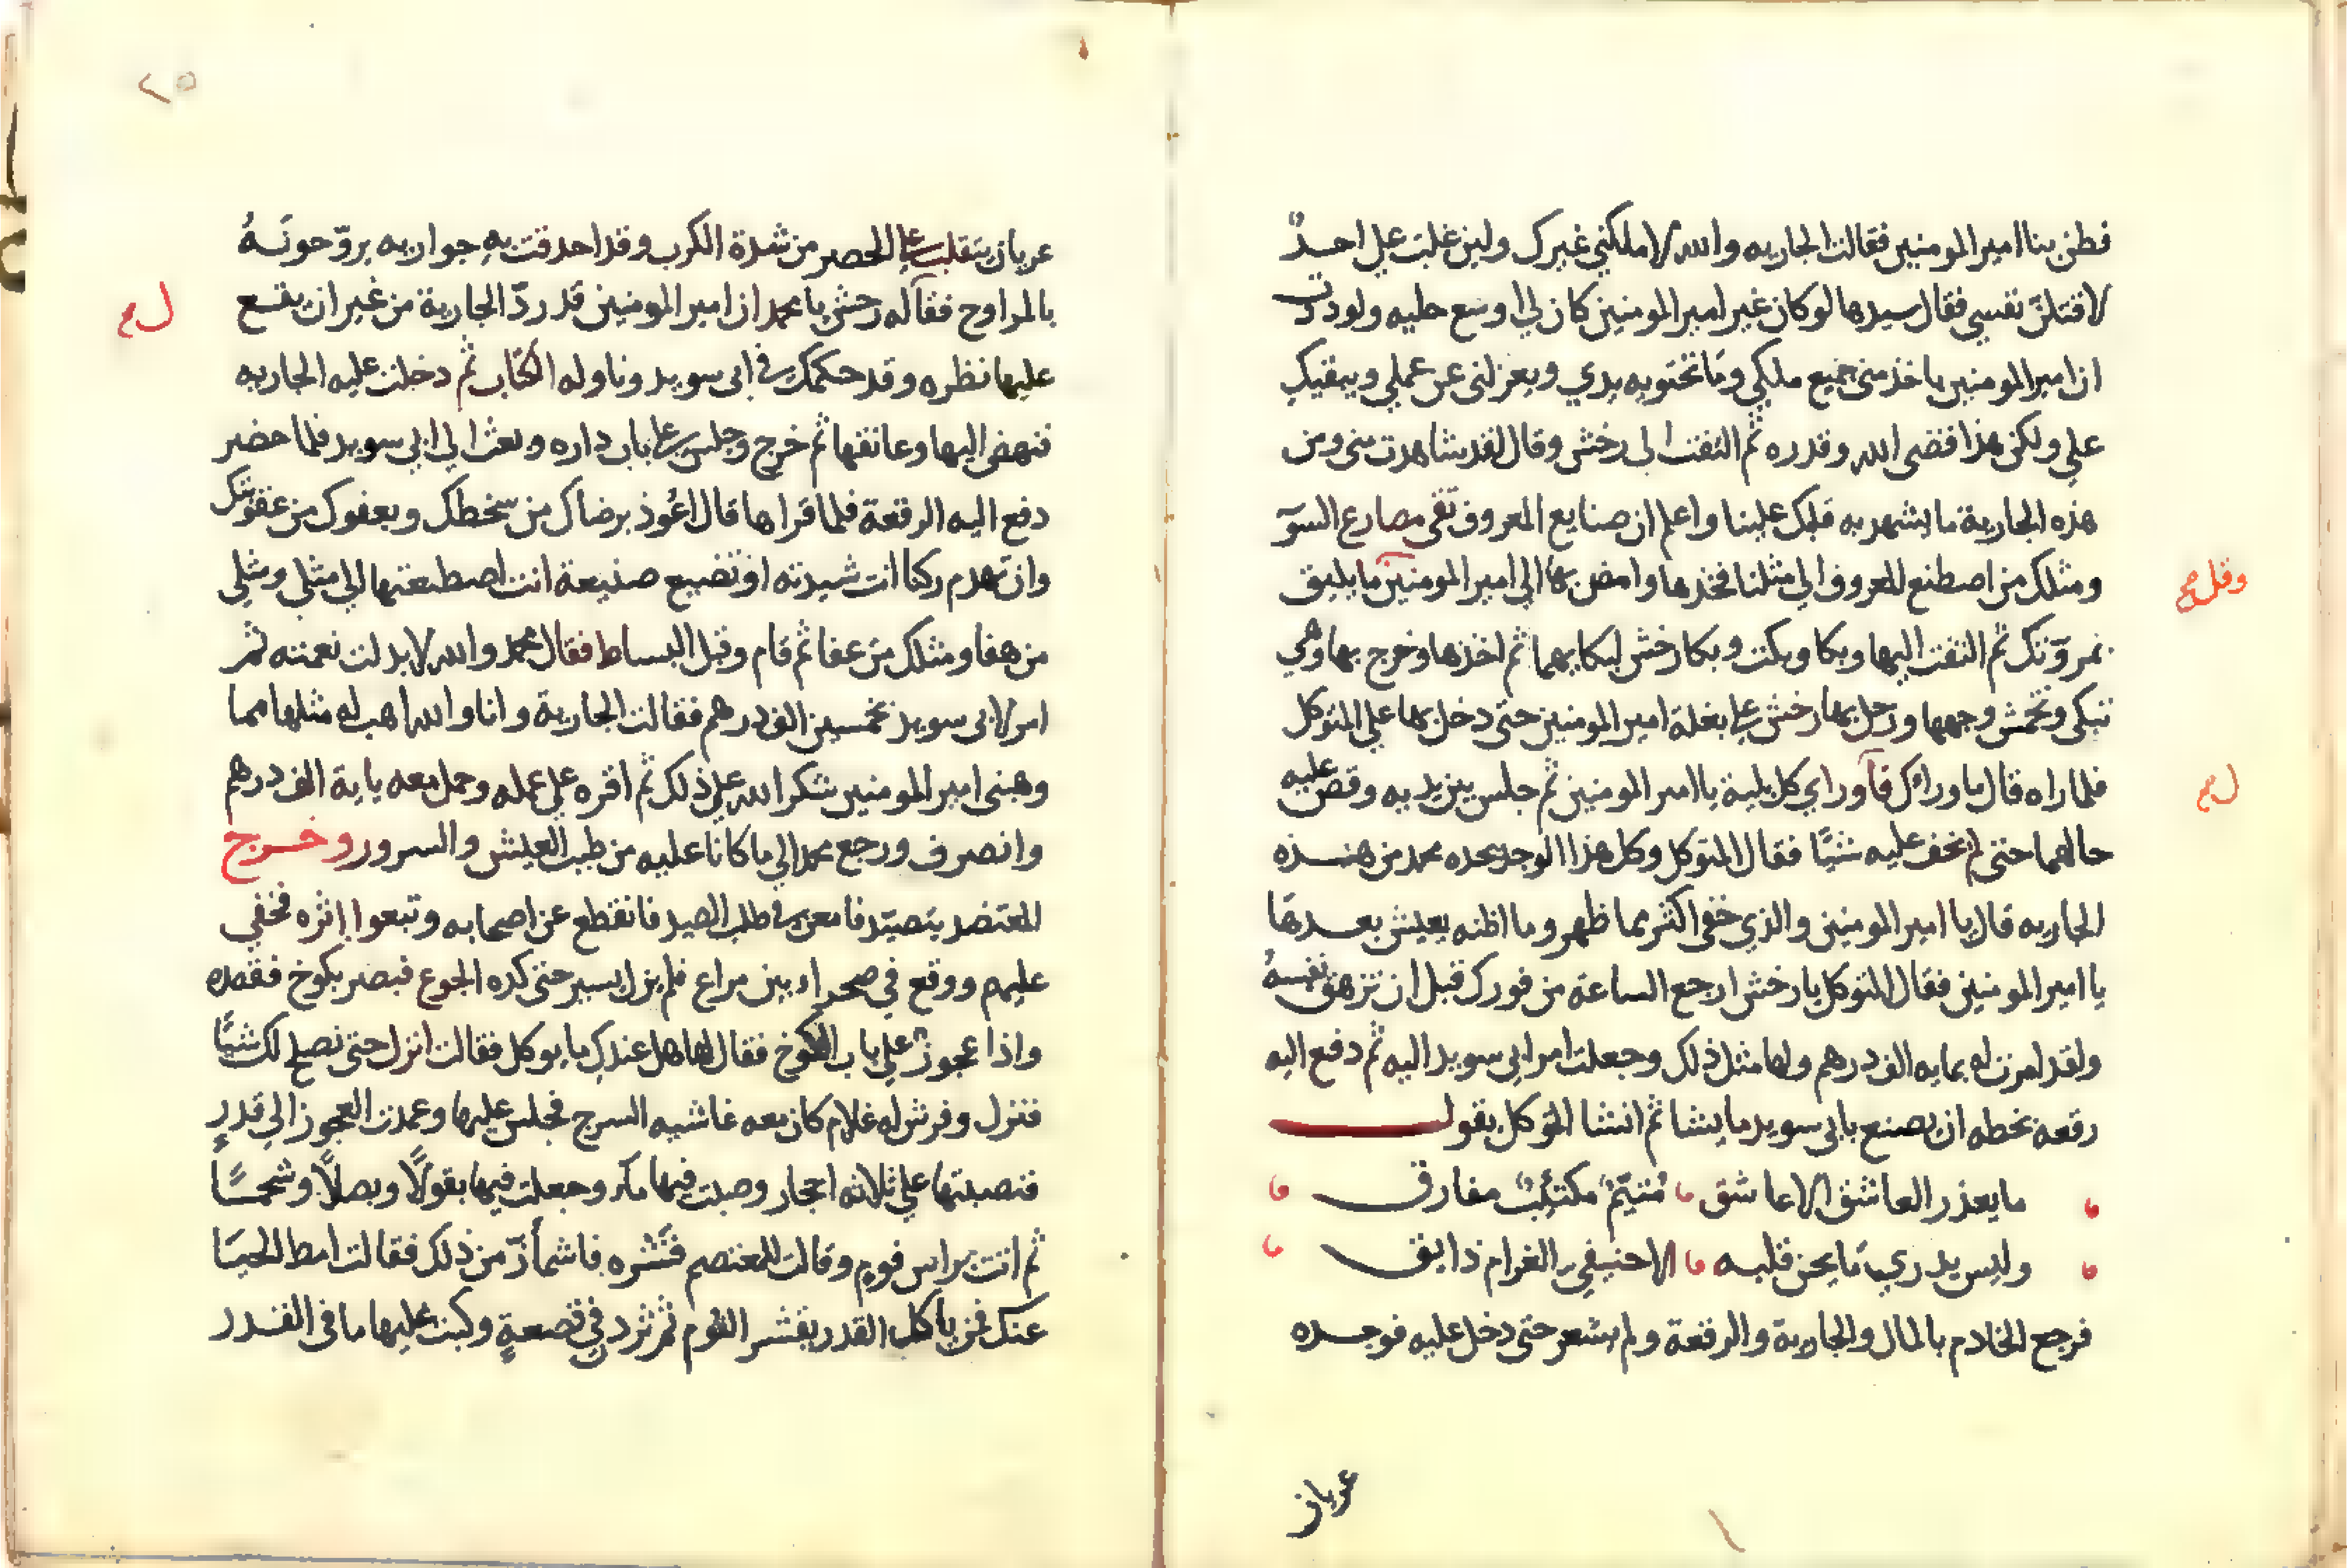 فظن بنا امير المومنين فقالت الجاريه والله لا ملكني غيرك ولين غلبت علي احدٌ
لاقتلنّ نفسي فقال سيدها لو كان غير امير المومنين كان لي اوسع حليه ولوددت
ان امير المومنين ياخذ مني جميع ملكي وما تحتويه يدي ويعزلني عن عملي ويبقيك
علي ولكن هذا قضى الله وقدره ثم التفت الى رخش وقال لقد شاهدت مني ومن
هذه الجارية ما يشهد به قلبك علينا واعلم ان صنايع المعروف تقى مصارع السوَ
ومثلك من اصطنع المعروف الي مثلنا فخذها وامض بها الي امير المومنين ما يليق
وقل صح
بمروّتك ثم التفت اليها وبكا وبكت وبكا رخش لبكايهما ثم اخذها وخرج بها وهي
تبكى وتخمش وجهها ورحل بها رخش على بغلة امير المومنين حتى دخل بها علي المتوكل
فلما راه قال ما وراك قآ وراي كل بلية يا امير المومنين ثم جلس بين يديه وقص عليه
ل صح
حالهما حتى لم يخف عليه شيًا فقال المتوكل وكل هذا الوجد يجده محمد من هـذه
الجاريه قال يا امير المومنين والذي خفى اكثر مما ظهر وما اظنه يعيش بعدها
يا امير المومنين فقال المتوكل يا رخش ارجع الساعة من فورك قبل ان تزهق نفسهُ
ولقد امرت له بمايه الف درهم ولها مثل ذلك وجعلت امر ابي سويد اليه ثم دفع اليه
رقعه بخطه ان يصنع بابي سويد ما يشا ثم انشا المتوكل يقول
ما يعذر العاشق الا عاشق متيّمٌ مكتئبٌ مفارق
وليس يدري ما يجن قلبه الا حنيفي الغرام ذايق
فرجع الخادم بالمال والجارية والرقعة ولم يشعر حتى دخل عليه فوجده
عريان
٢٥
عريان يتقلب على الحصر من شدة الكرب وقد احدقت به جواريه يروّحونَهُ
بالمراوح فقآ له رخش يا محمد ان امير المومنين قد ردّ الجارية من غير ان يقع
ل صح
عليها نظره وقد حكمك في ابى سويد وناوله الكتاب ثم دخلت عليه الجاريه
فنهض اليها وعانقها ثم خرج وجلس على باب داره وبعث الي ابي سويد فلما حضر
دفع اليه الرقعة فلما قراها قال اعُوذ برضاك من سخطك وبعفوك من عقوبتك
وان تهدم ركنا انت شيدته او تضيع صنيعة انت اصطنعتها الي مثلي ومثلي
من هفا ومثلك من عفا ثم قام وقبل البساط فقال محمد والله لا بدلت نعمته ثم
امر لابى سويد بخمسين الف درهم فقالت الجارية وانا والله اهب له مثلها مما
وهبنى امير المومنين شكر الله علي ذلك ثم اقره علي عمله وحمل معه ماية الف درهم
وانصرف ورجع محمد الي ما كانا عليه من طيب العيش والسرور وخـرج
المعتضد يتصيّد فامعن في طلب الصيد فانقطع عن اصحابه وتبعوا اثره فخفي
عليهم ووقع في صحراء بين مراع فلم يزل يسير حتى كده الجوع فبصر بكوخ فقصده
واذا عجوزٌ علي باب الكوخ فقال لها هل عندك ما يوكل فقالت انزل حتى نصلح لك شيًا
فنزل وفرش له غلام كان معه غاشيه السرج فجلس عليها وعمدت العجوز الي قدرٍ
فنصبتها علي ثلاثه احجار وصبت فيها مآ وجعلت فيها بقولًا وبصلًا وشحمـًا
ثم اتت براس فوم وقالت للمعتصم قَشّره فاشمأزّ من ذلك فقالت امط الحيَا
عنك فمن ياكل القدر يقشر الفوم ثم ثرد في قصعةٍ وكبت عليها ما في القدر